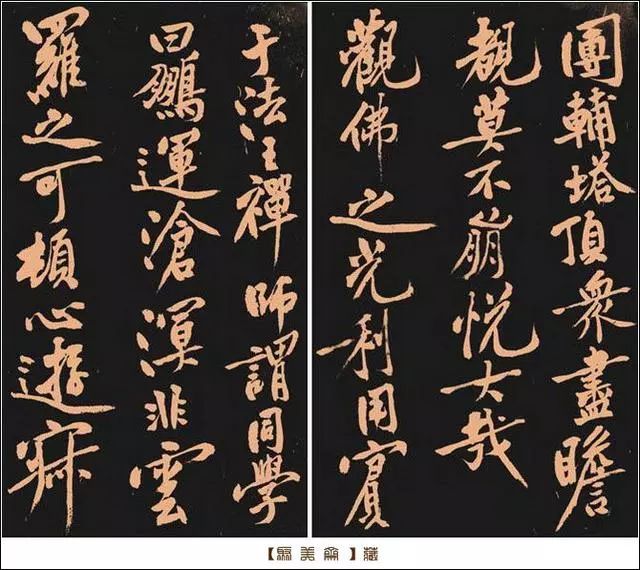 團輔塔頂衆盡瞻
覩莫不崩悅大哉
觀佛之光利用賓
于法王禪師謂同學
曰鵬運滄溟非雲
羅之可頓心遊寂
【美齋】藏